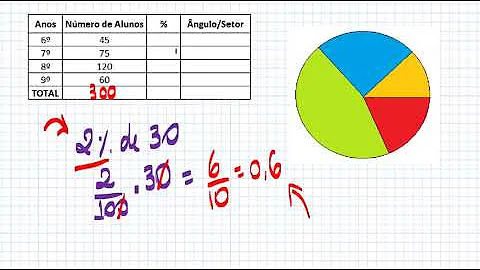 Anos Número de Alunos % Ângulo/Setor
6º 45
7º 75
8º 120
9º 60
TOTAL 300
2% de 30
2/100 . 30 = 6/10 = 0,6